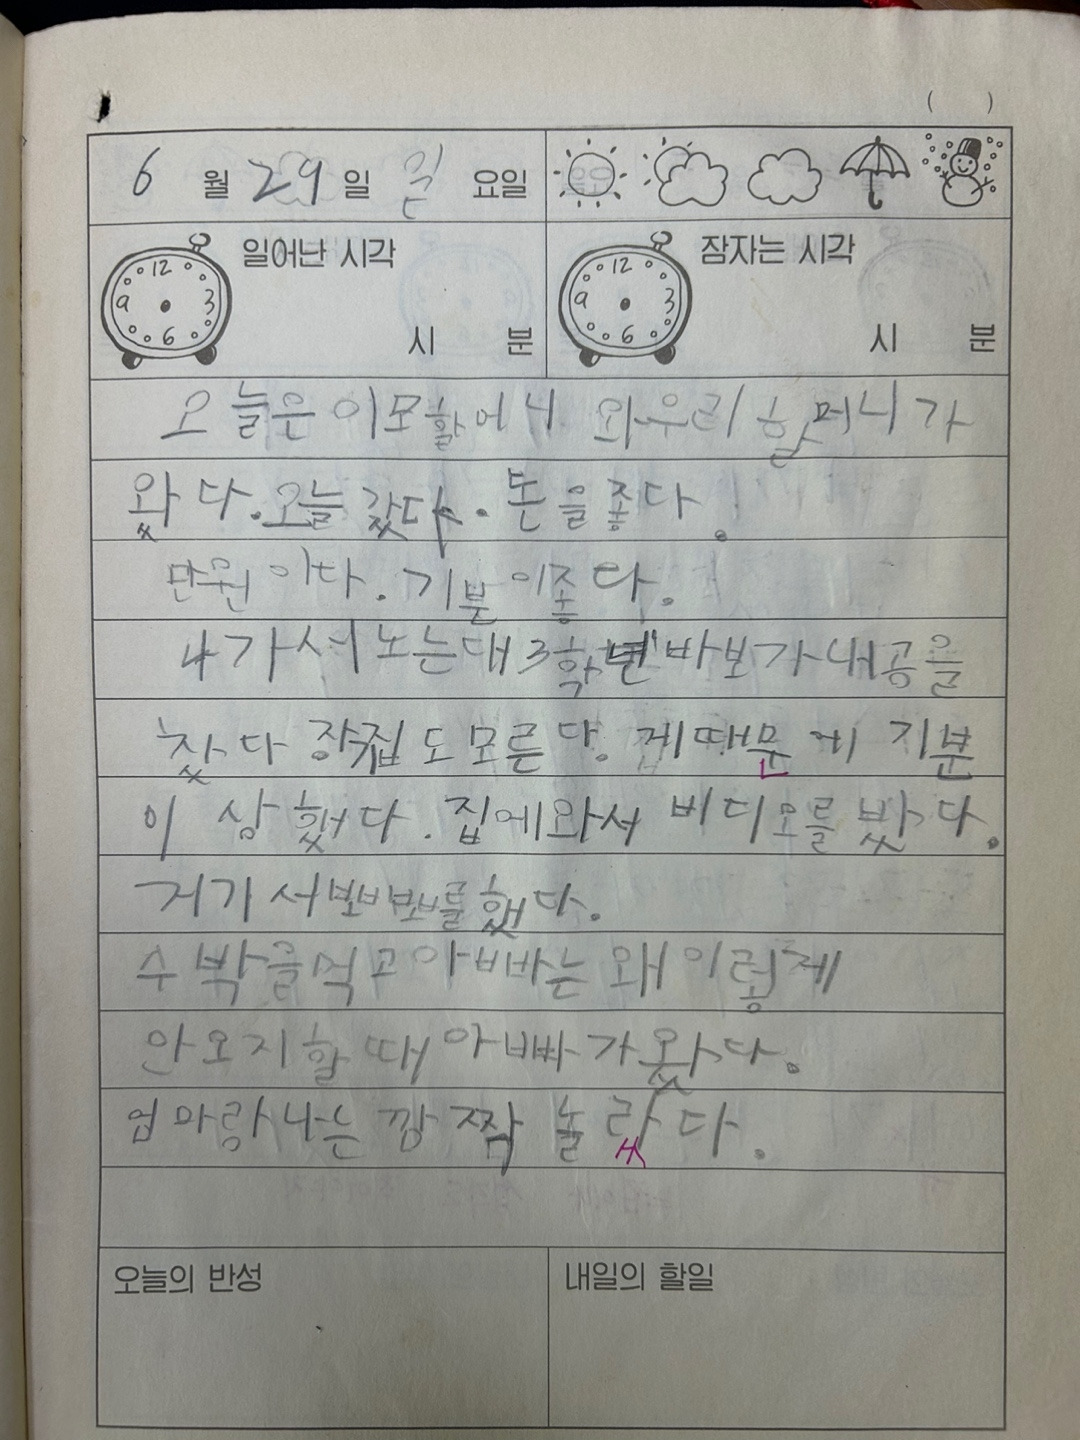 ( )
6 월 29 일 일 요일
일어난 시각
12 3 6 9
시 분
잠자는 시각
12 3 6 9
시 분
오늘은 이모할머니 와우리 할머니가
왔다. 오늘 갔다. 돈을좋다.
만원 이다. 기분 이좋다.
나가서 노는대 3학년 바보가 내공을
찼다 장집도모른다. 게때문에 기분
이 상했다. 집에와서 비디오를 밨다.
거가서 뽀뽀를했다.
수박을먹고 아빠는 왜 이렇게
안오지 할때 아빠가왔다.
엄마랑나는 깜짝 놀랐다.
오늘의 반성
내일의 할일